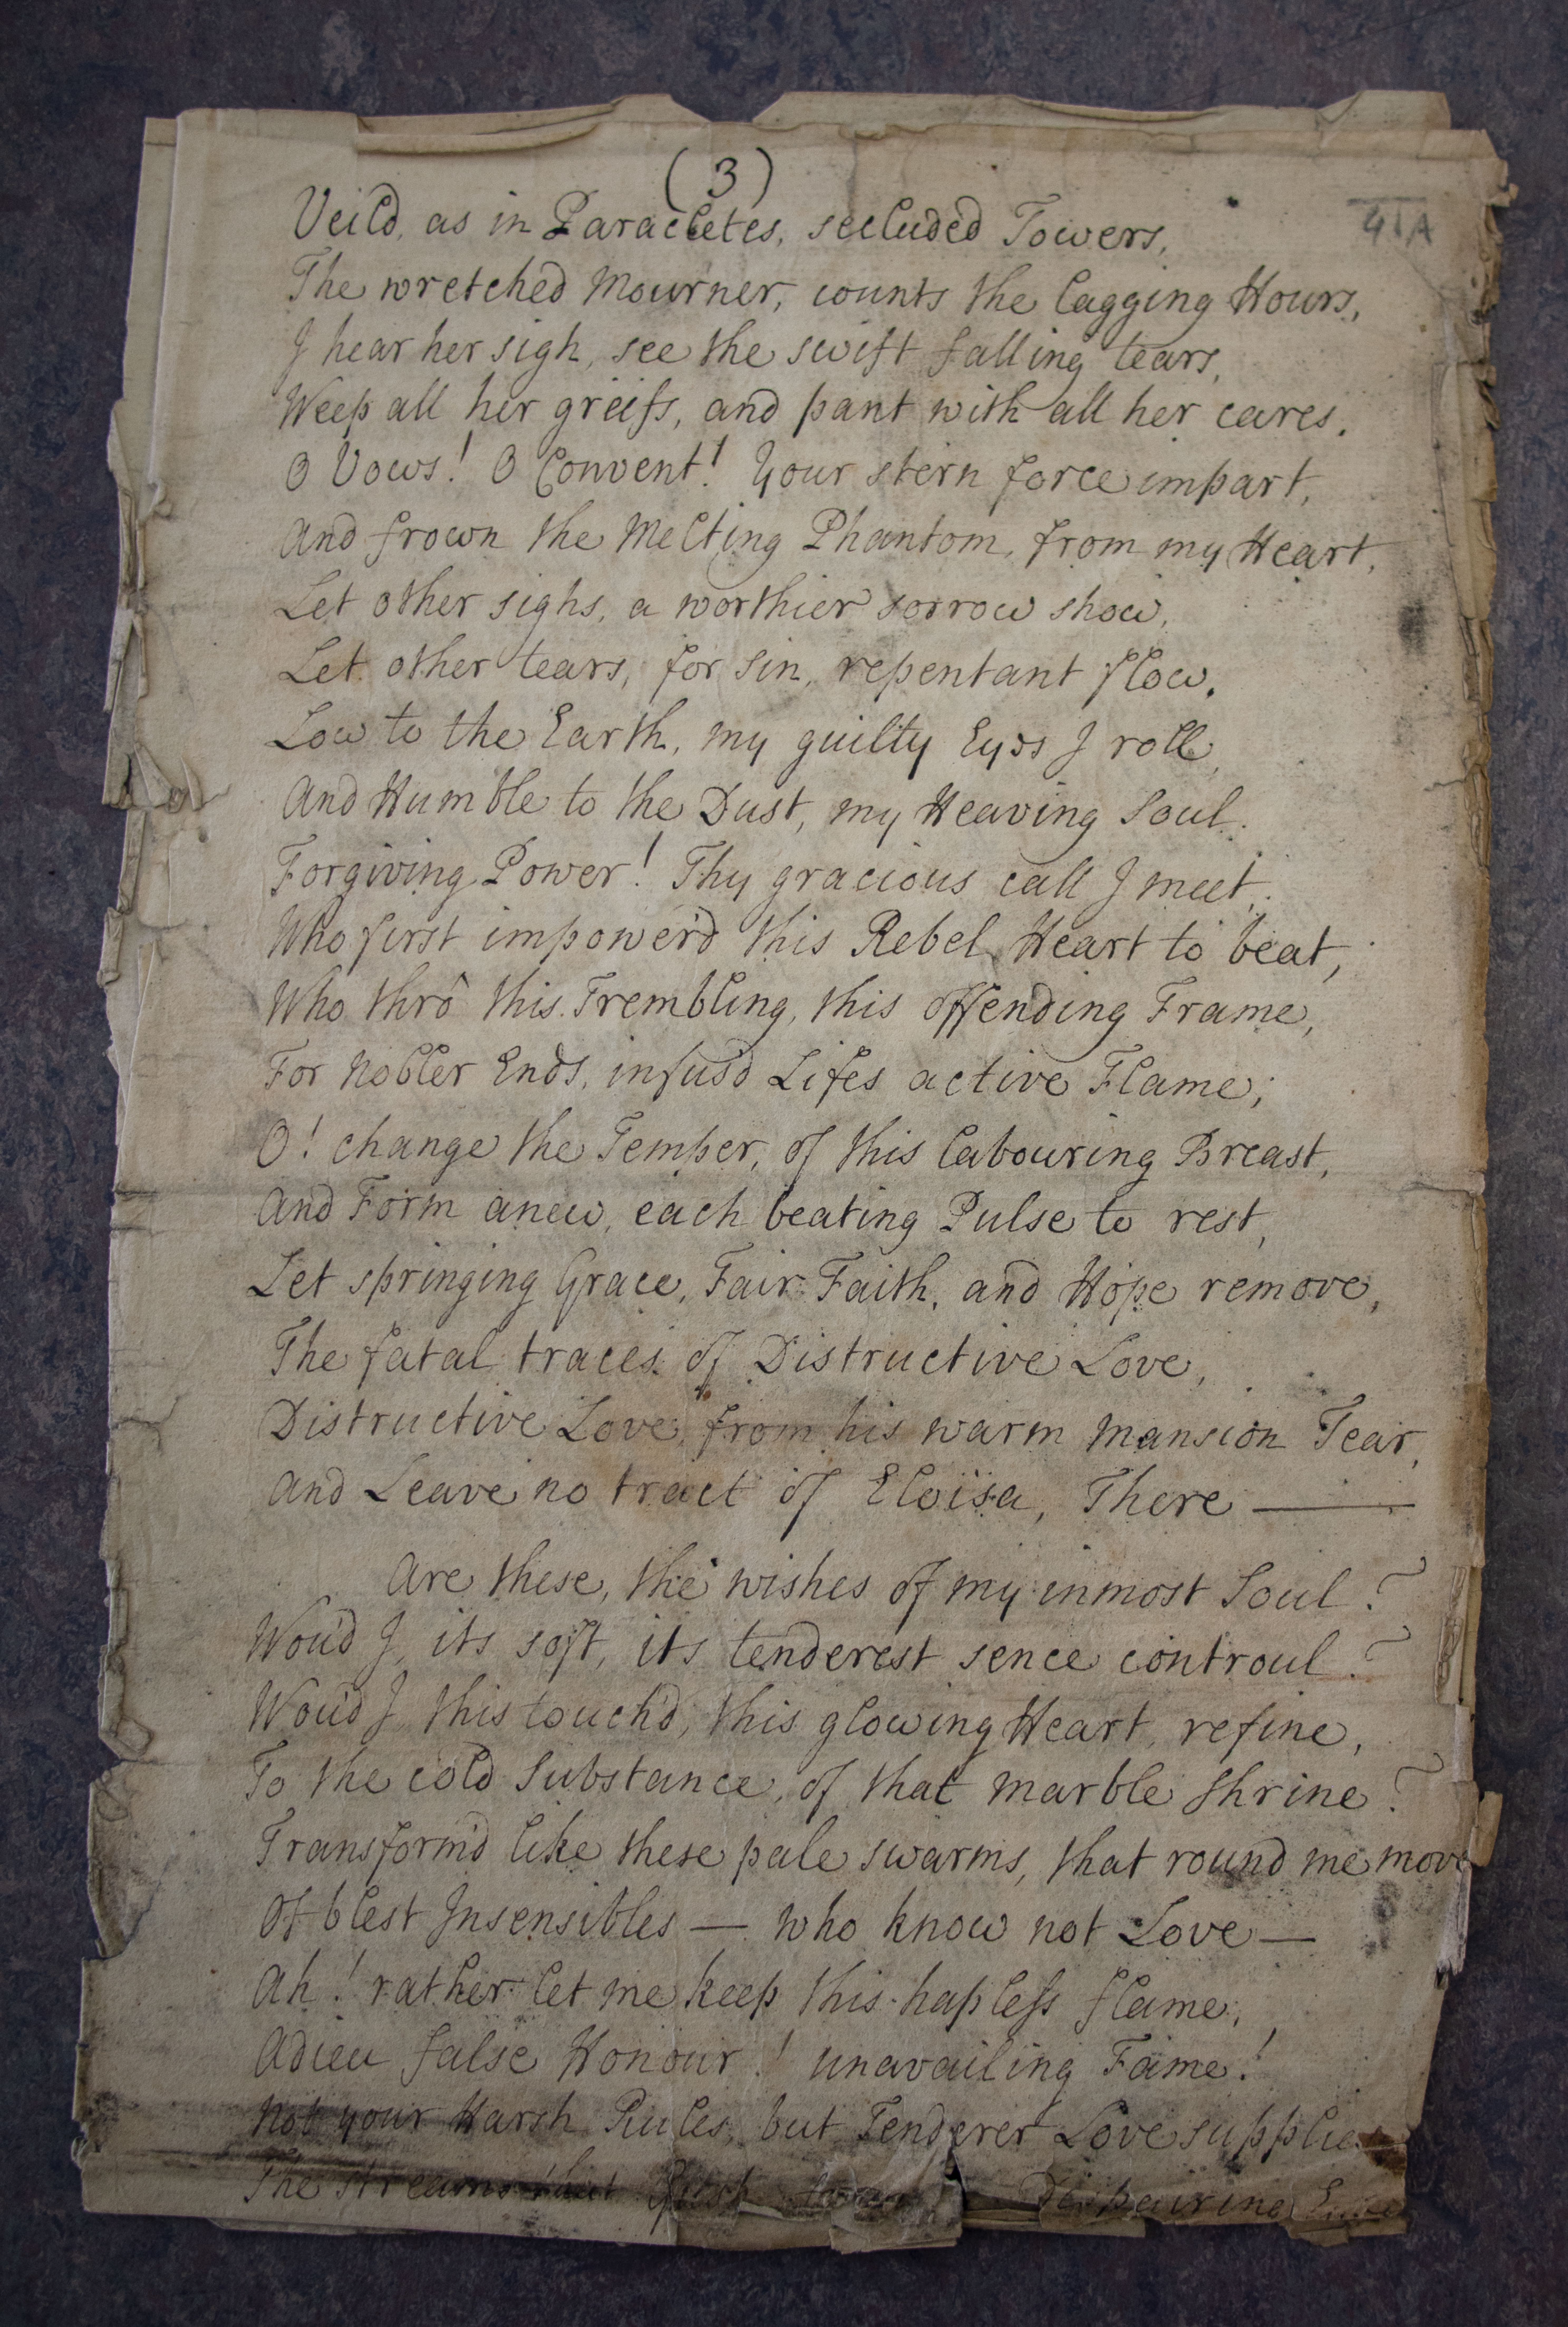 (3)
41A
Veild, as in Paracletes, secluded Towers,
The wretched Mourner, counts the lagging Hours,
I hear her sigh, see the swift falling tears,
Weep all her greifs, and pant with all her cares.
O Vows! O Convent! Your stern force impart,
And frown the Melting Phantom, from my Heart,
Let other sighs, a worthier sorrow show,
Let other tears, for sin, repentant flow.
Low to the Earth, my guilty Eyes I roll,
And Humble to the Dust, my Heaving Soul.
Forgiving Power! Thy gracious call I meet,
Who first impower'd this Rebel Heart to beat,
Who thrô this Trembling, this offending Frame,
For Nobler Ends, infus'd Lifes active Flame;
O! change the Temper, of this labouring Breast,
And Form anew, each beating Pulse to rest,
Let springing Grace, Fair Faith, and Hope remove,
The fatal traces of Distructive Love,
Distructive Love, from his warm Mansion Tear,
And Leave no tract of Eloïsa, There —
Are these, the wishes of my inmost Soul?
Wou'd I, its soft, its tenderest sence controul?
Wou'd I, this touch'd, this glowing Heart, refine,
To the cold Substance, of that marble Shrine?
Transform'd like these pale swarms, that round me move
Of blest Insensibles — who know not Love —
Ah! rather let me keep this hapless flame,
Adieu false Honour! unavailing Fame!
Not your Harsh Rules, but Tenderer Love supplies
The streams that gush from Despairing